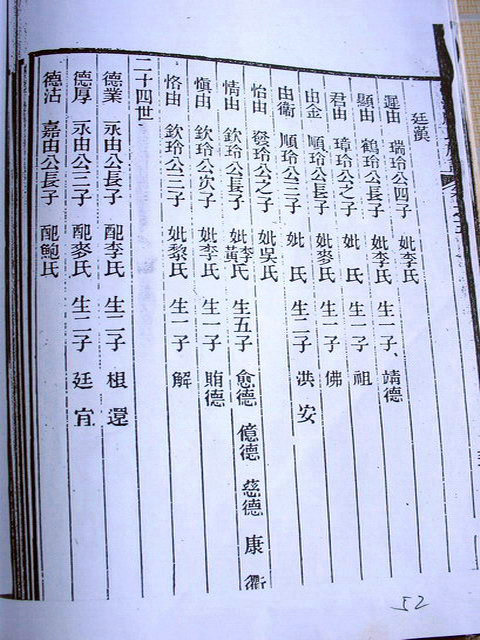 廷漢
遲由 瑞玲公四子 妣李氏 生一子、靖德
顯由 鶴玲公長子 妣李氏 生一子 祖
君由 璋玲公之子 妣 氏 生一子 佛
由金 順玲公長子 妣麥氏 生一子
由衞 順玲公三子 妣 氏 生二子 洪 安
怡由 發玲公之子 妣吳氏
情由 欽玲公長子 妣李黃氏 生五子 愈德 億德 慈德 康 衢
愼由 欽玲公次子 妣李氏 生一子 賄德
恪由 欽玲公三子 妣黎氏 生一子 解
二十四世
德業 永由公長子 配李氏 生二子 根 還
德厚 永由公二子 配麥氏 生二子 廷 宜
德沾 嘉由公長子 配鮑氏
52